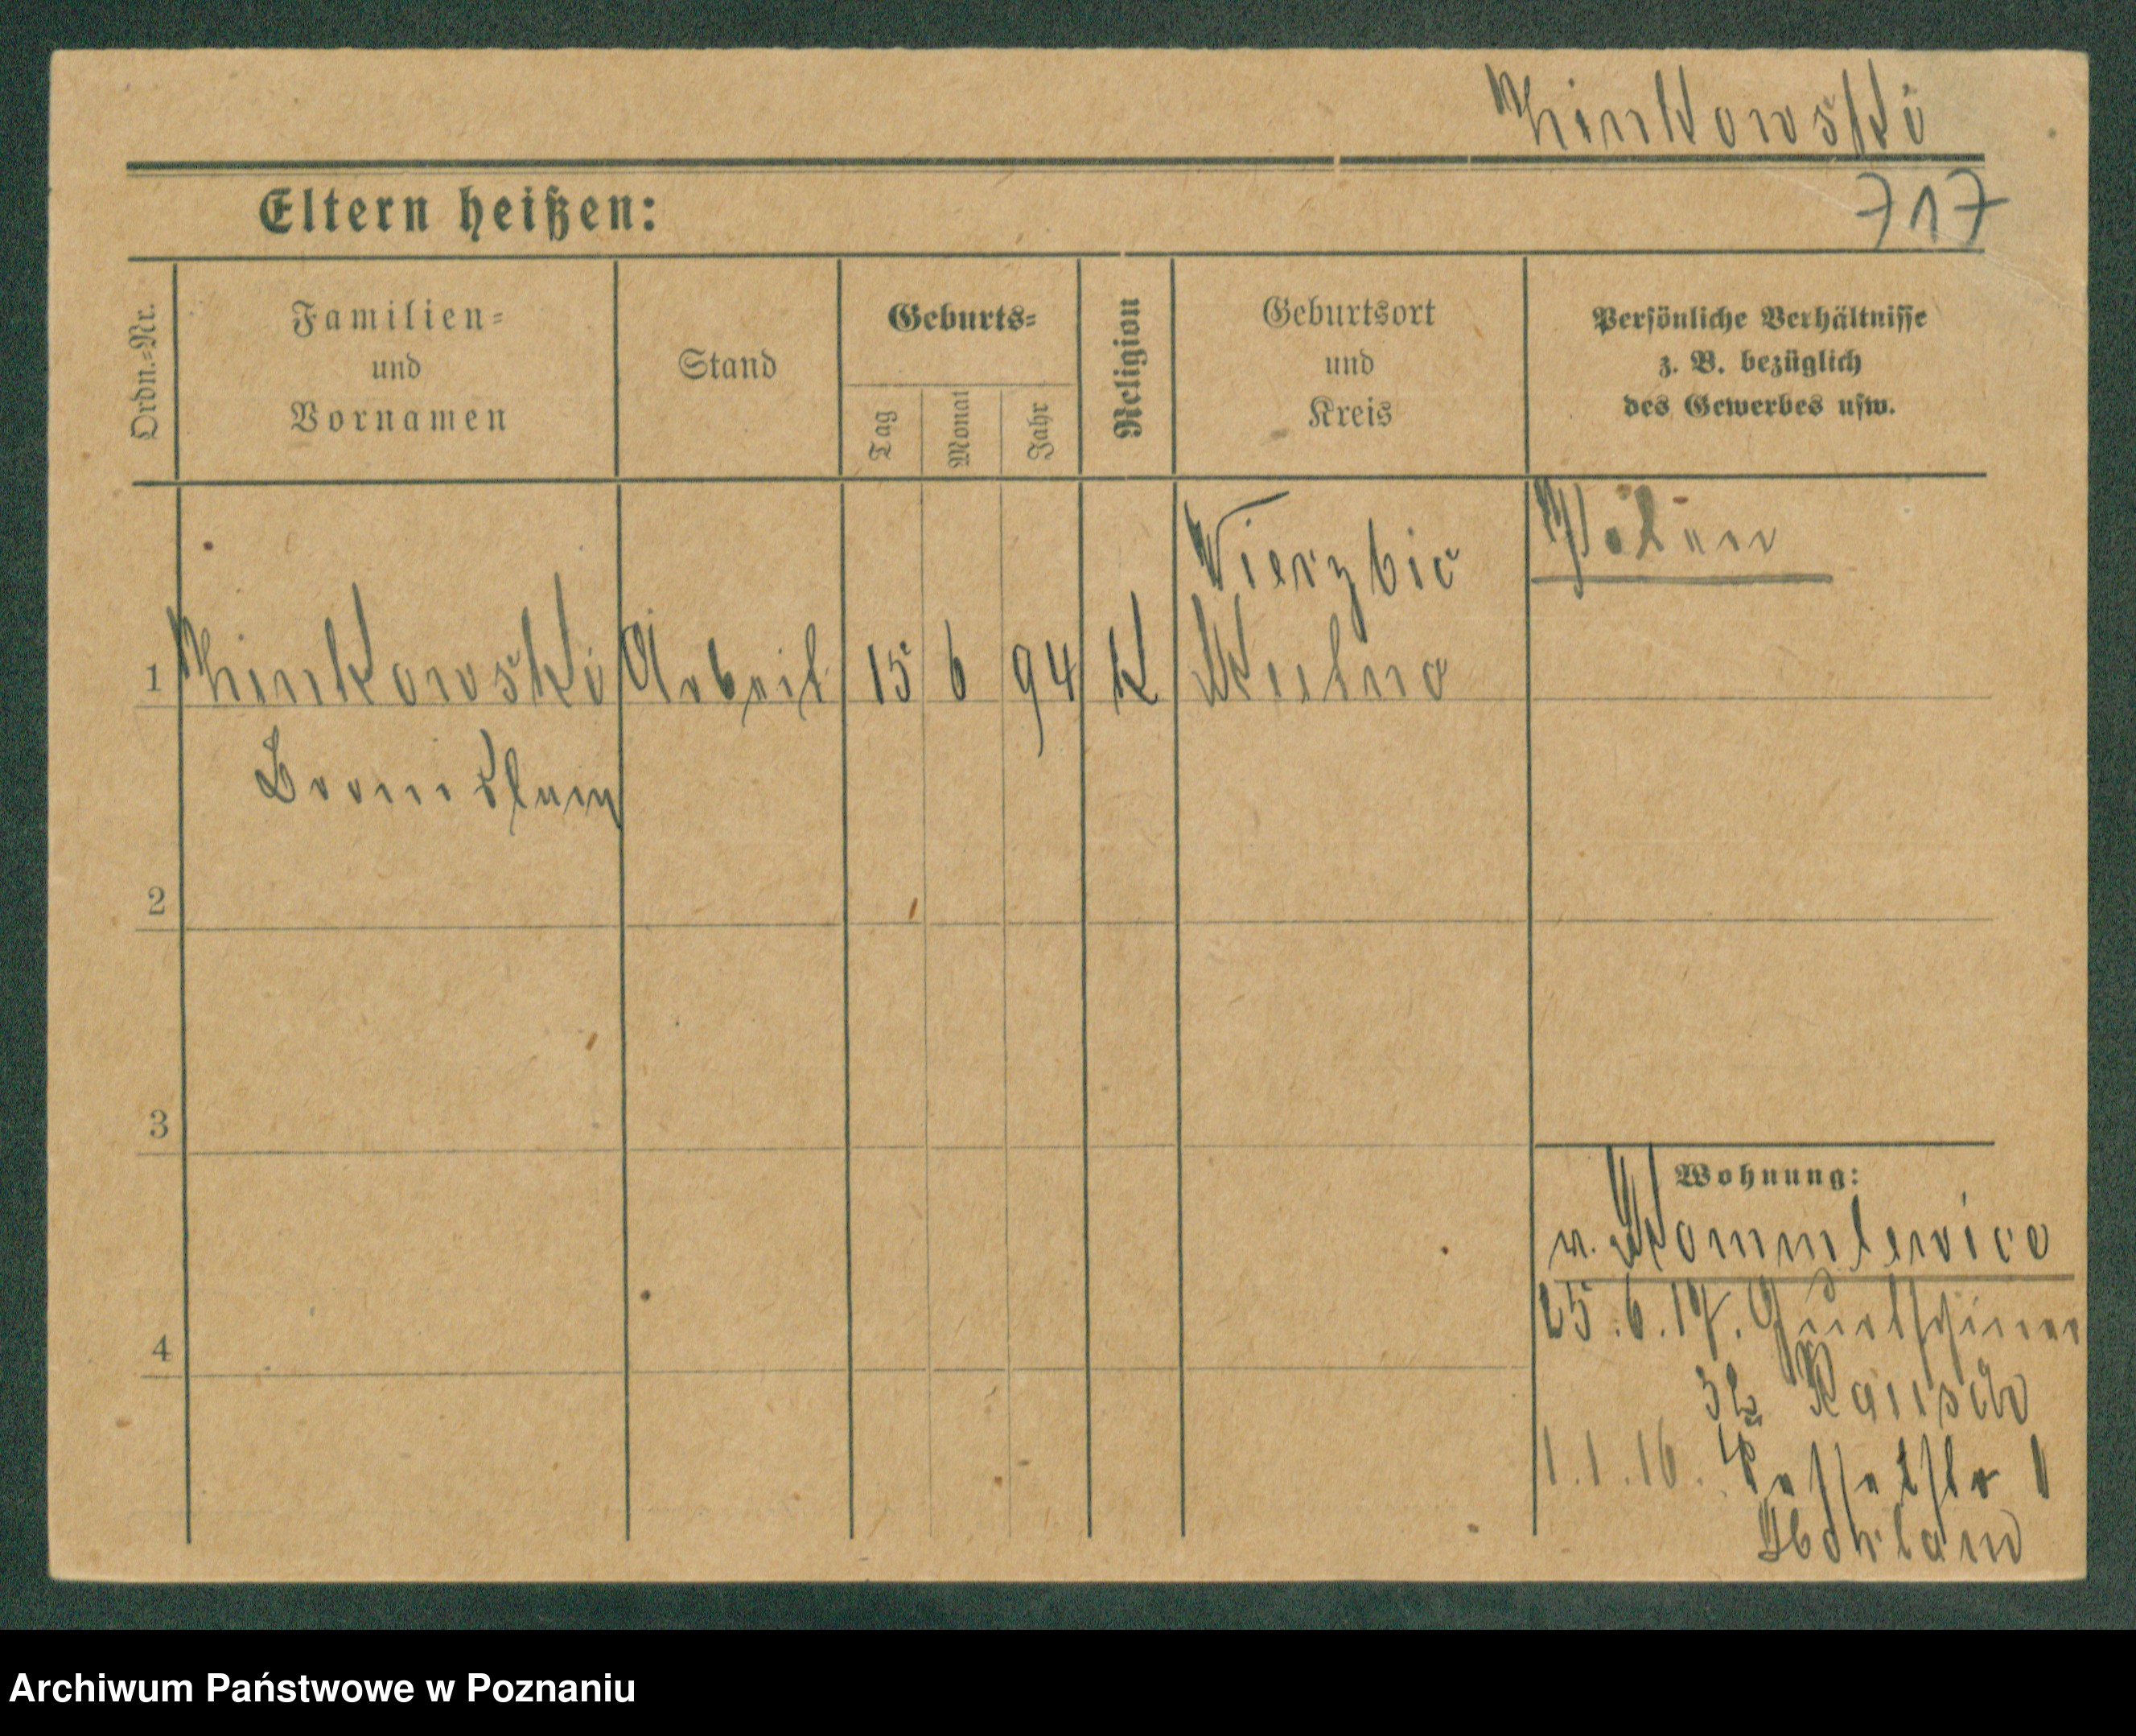 Zinkowski
Eltern heißen:
717
Ordn.=Nr.
Familien=
und
Vornamen
Stand
Geburts=
Tag
Monat
Jahr
Religion
Geburtsort
und
Kreis
Persönliche Verhältnisse
z. B. bezüglich
des Gewerbes usw.
Wierzbie
Polen
1 Zinkowski Arbeit 15 6 94 K Kutno
Bronislaw
2
3
Wohnung:
v.
25.6.17.
4
1.1.16.
Archiwum Państwowe w Poznaniu